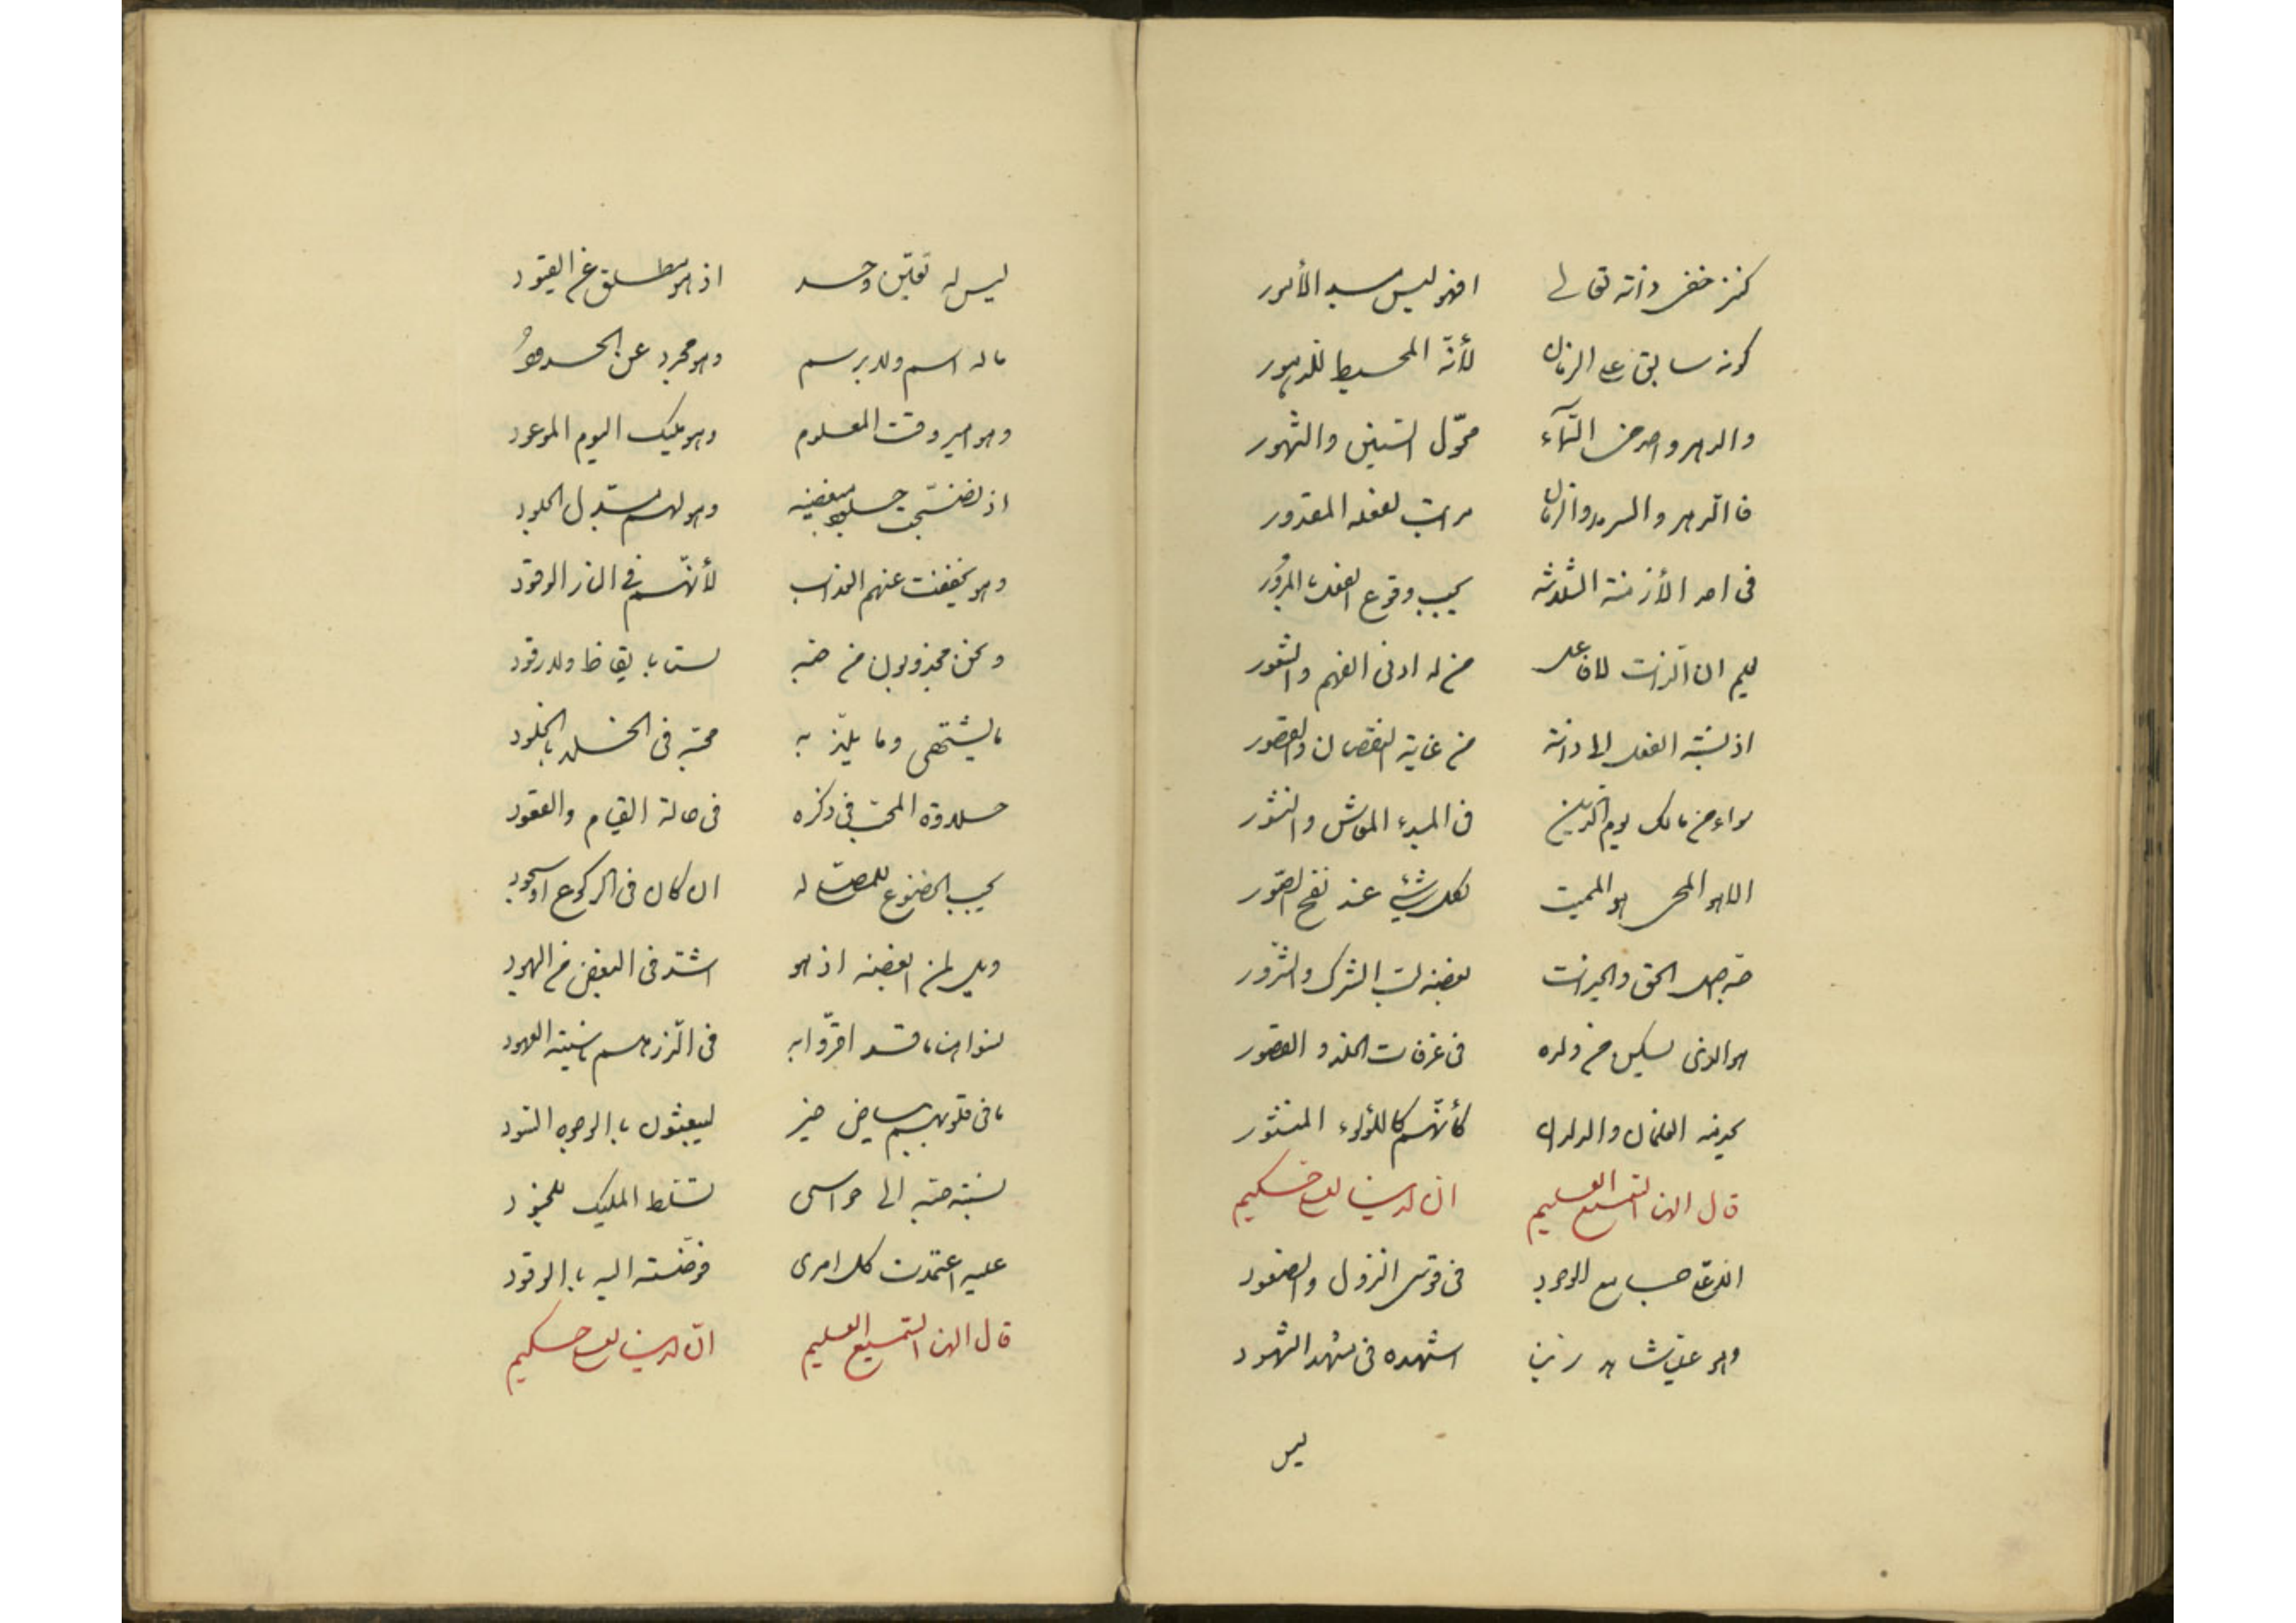 كنز خفى ذاته تعالى افهو ليس مبدء الأمور
كونه سابق على الزمان لأنّه المحيط للدهور
والدهر واحد من اسمآء محوّل السّنين والشّهور
فالدّهر والسرمد والزمان مراتب لفعله المقدور
فى احد الأزمنة الثلوثه يجب وقوع المرور
ان الذات من له ادنى الفهم والشّعور
اذ نسبة الفعل الى ذاته من غاية النقصان والقصور
من مالك يوم الدّين فى المبدء المعاش والنشور
المحيى هو المميت لكل شيئ عند نفخ الصّور
حبّه اصل الحق والخيرات بغضه لب الشرك والشّرور
هو الذى يسكن من والاه فى غرفات الخلد والقصور
يخدمه الغلمان والولدان كأنّهم كاللؤلؤء المنثور
قال الهنا السّميع العليم ان لدينا لعلى حكيم
جامع الوجود فى قوس النزول والصّعود
وهو على شاهد ربّنا اشهده فى مشهد الشهود
ليس
ليس له تعيّن وحد اذ هو مطلق عن القيود
ما له اسم ولا برسم وهو مجرد عن الحدود
وهو امير وقت المعلوم وهو مليك اليوم الموعود
اذ نضّجت جلود مبغضيه وهو لهم مبدّل الجلود
وهو يخفف عنهم العذاب لأنّهم فى النار الوقود
ونحن مجذوبون من حبّه لسنا بايقاظ ولا رقود
ما يشتهى وما يلذّ به محبّه فى الخلد بالخلود
حلاوة المحبّ فى ذكره فى حالة القيام والقعود
يجب الخضوع للمصلّ له ان كان فى الركوع او سجود
ويل لمن ابغضه اذ هو اشدّ فى البغض من اليهود
نسوا هنا ما قد اقرّوا به فى الذّر هم العهود
ما فى قلوبهم بياض خير ليبعثون بالوجوه السّود
نسبة حبّه الى حواسى تسلّط المليك للجنود
عليه اعتمدت كل امرى فوّضته اليه بالوقود
قال الهنا السّميع العليم انّ لدينا لعلى حكيم